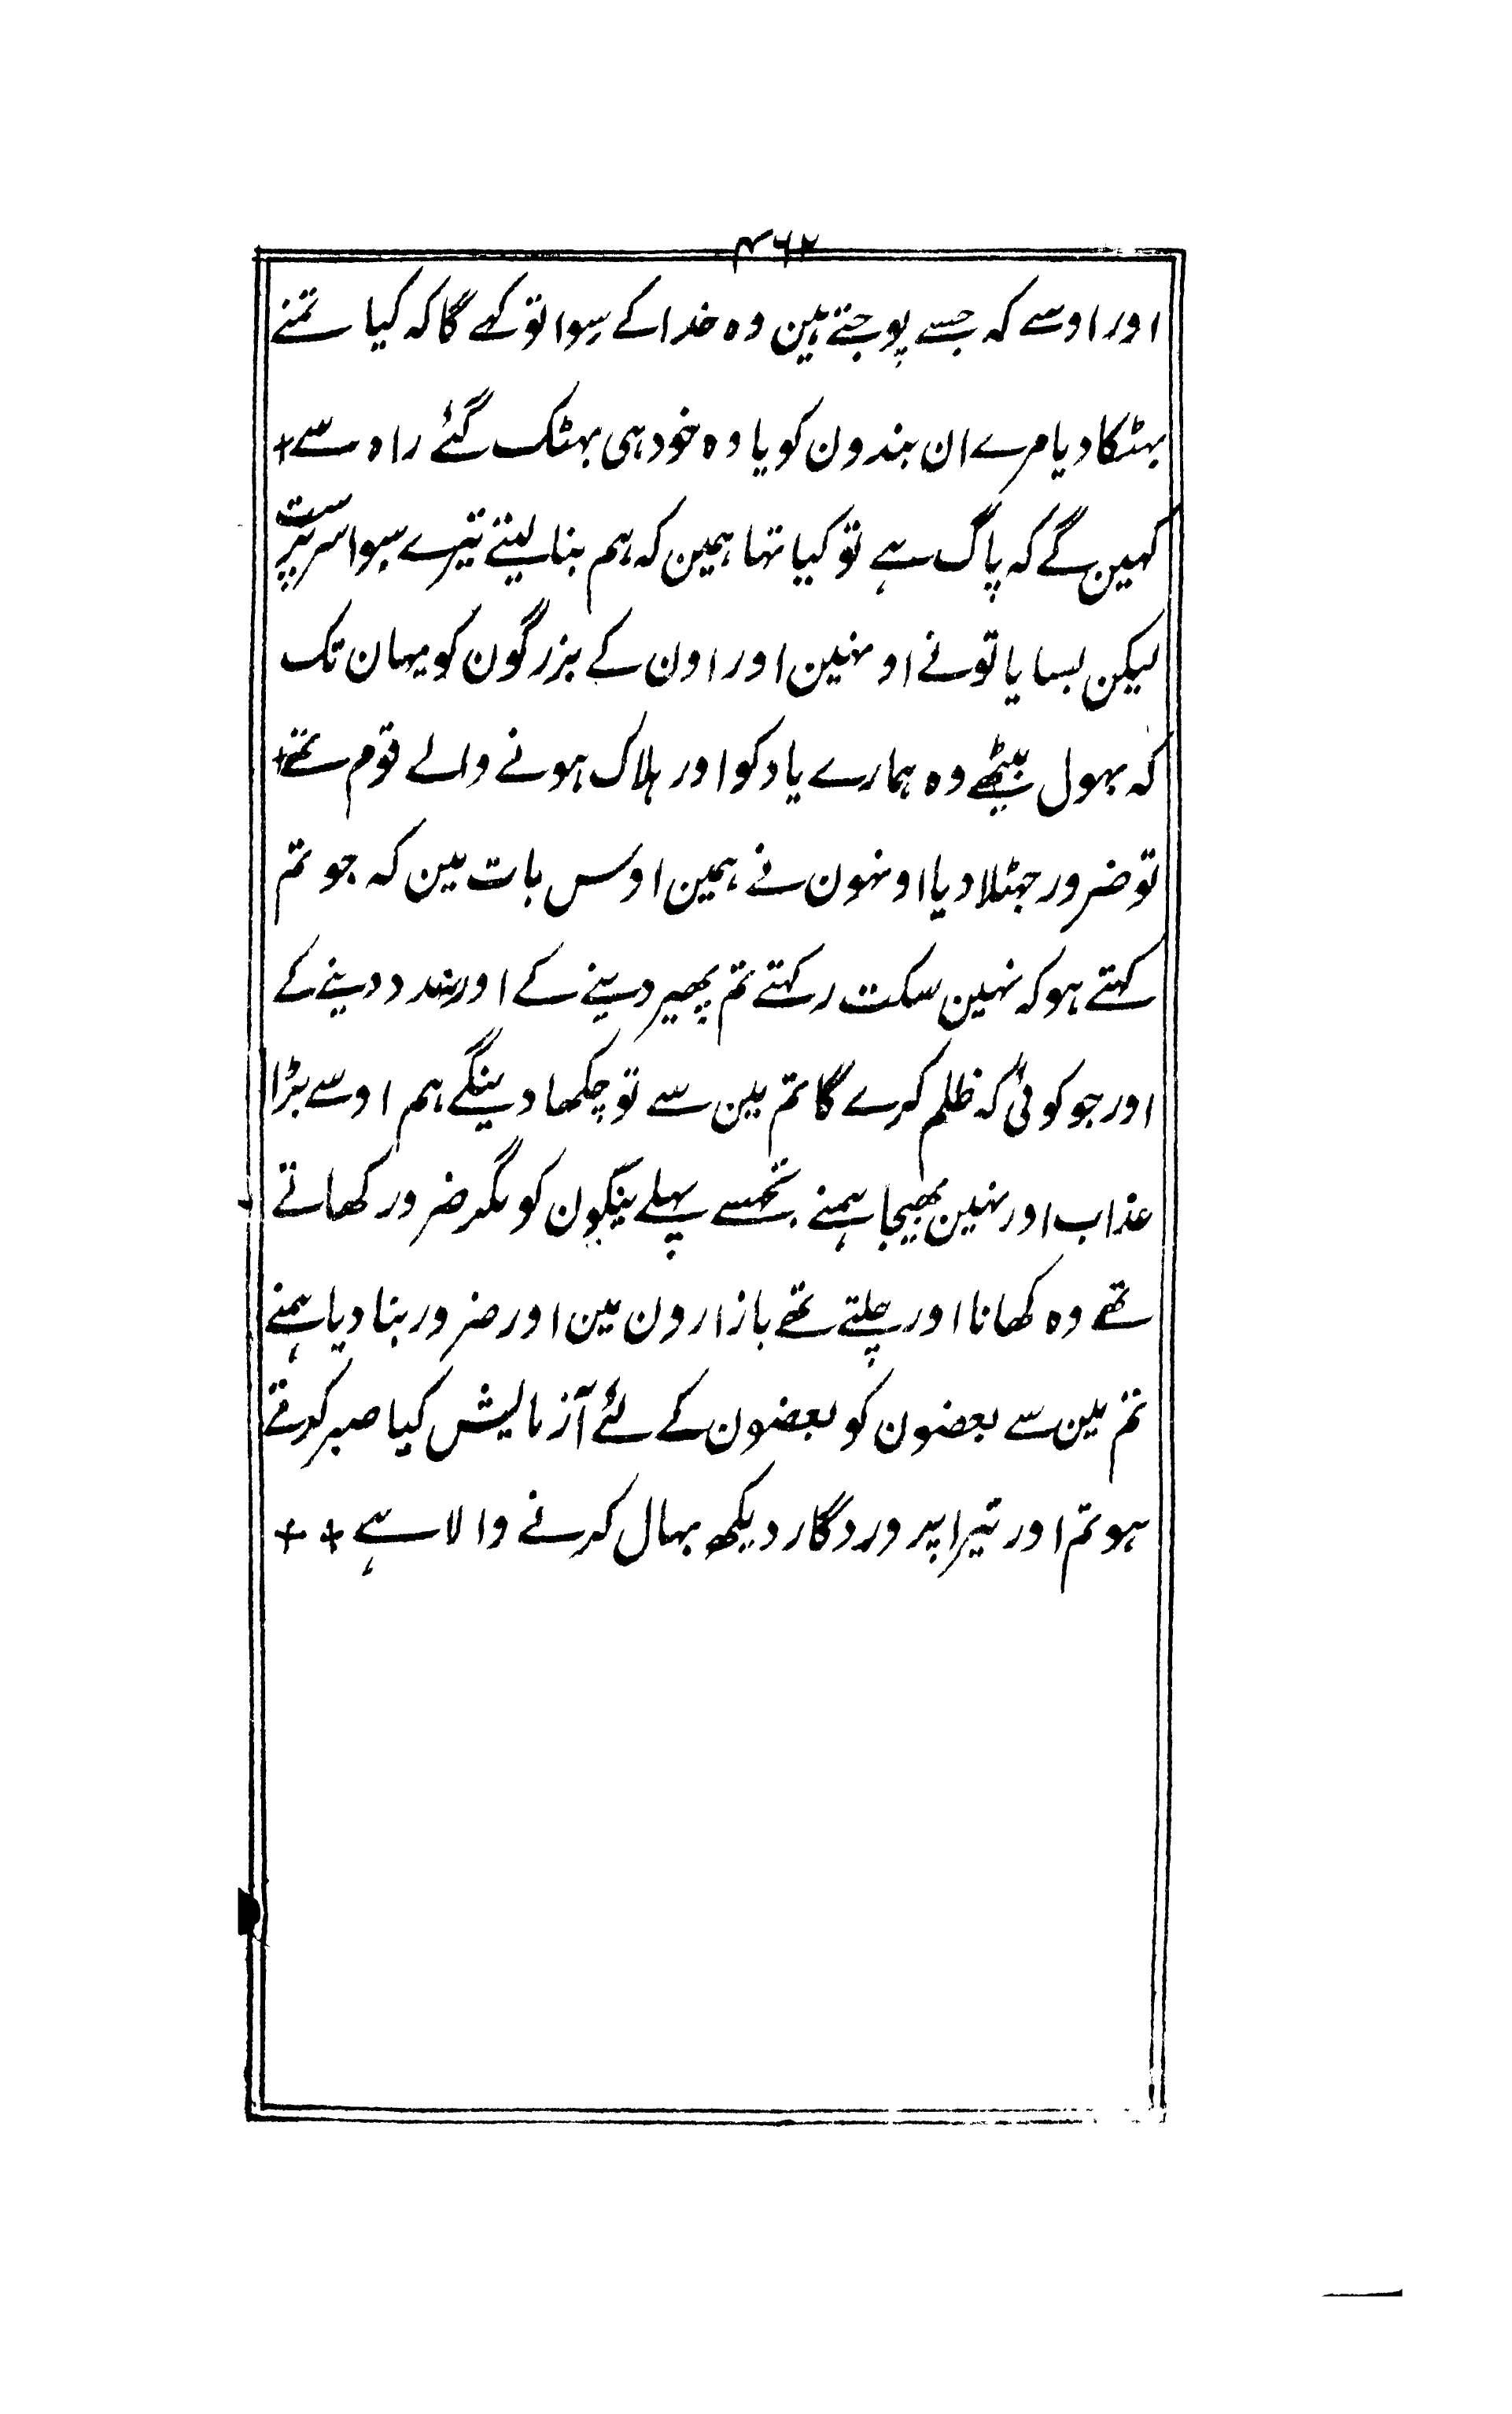 ۴۶۲
اور اوسے کہ جسے پوجتے ہین وہ خدا کے سِوا تو کہے گا کہ کیا تمنے
بہٹکا دیا مرے ان بندون کو یا وہ خود ہی بہٹک گئے راہ سے +
کہین گے کہ پاگ ہے تو کیا تہا ہمین کہ ہم بنا لیتے تیرے سِوا سرپرست
لیکن بسایا تونے اونہین اور اون کے بزرگون کو یہان تک
کہ بہول بیٹھے وہ ہمارے یاد کو اور ہلاک ہونے والے قوم تھے +
تو ضرور جہٹلا دیا اونہون نے ہمین اوس بات مین کہ جو تم
کہتے ہو کہ نہین سکت رکہتے تم پھیر دینے کے اور نہ مدد دینے کے
اور جو کوئی کہ ظلم کرے گا تم مین سے تو چکھا دینگے ہم اوسے بڑا
عذاب اور نہین بھیجا ہمنے تجھسے پہلے پیکون کو مگر ضرور کھاتے
تھے وہ کھانا اور چلتے تھے بازارون مین اور ضرور بنا دیا ہمنے
تم مین سے بعضون کو بعضون کے لئے آزمایش کیا صبر کرتے
ہو تم اور تیرا پروردگار دیکھ بہال کرنے والا ہے + +